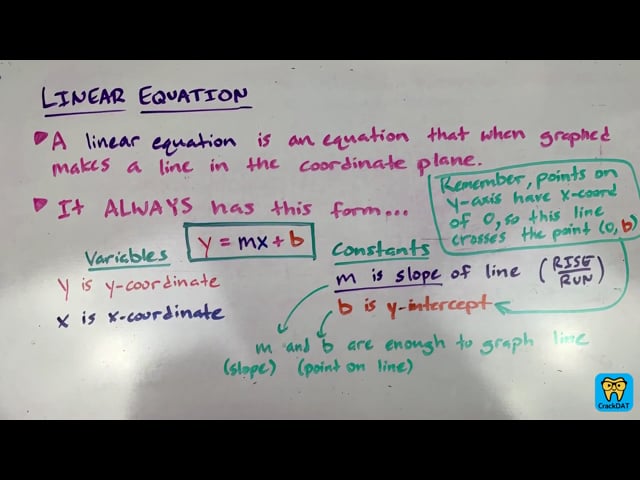 LINEAR EQUATION
A linear equation is an equation that when graphed
makes a line in the coordinate plane.
It ALWAYS has this form...
Remember, points on
y-axis have x-coord
of 0, so this line
crosses the point (0, b)
y = mx + b
Variables
y is y-coordinate
x is x-coordinate
Constants
m is slope of line (RISE/RUN)
b is y-intercept
m and b are enough to graph line
(slope) (point on line)
CrackDAT